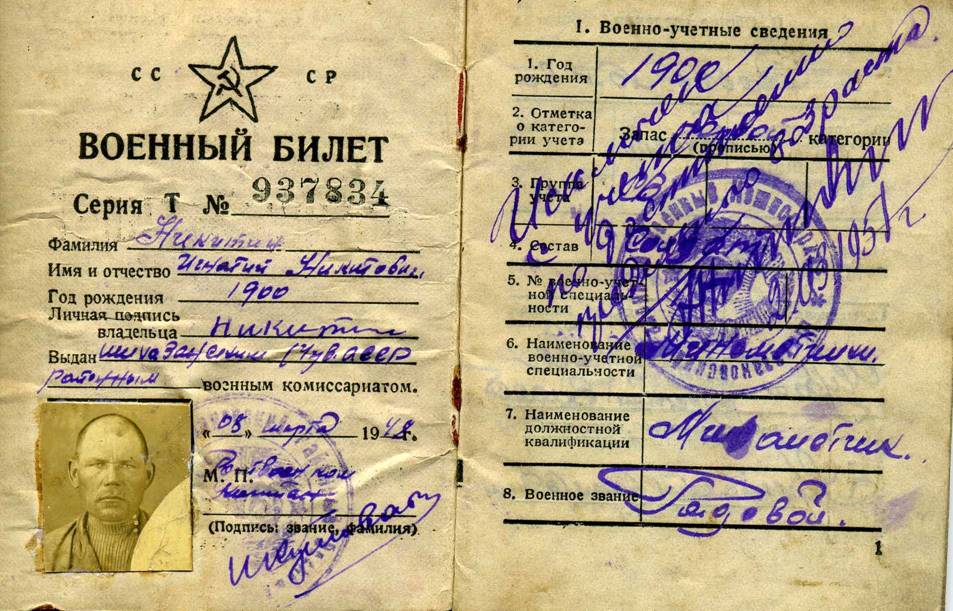 СС СР
ВОЕННЫЙ БИЛЕТ
Серия Т № 937834
Фамилия Никитин
Имя и отчество Игнатий Никитович
Год рождения 1900
Личная подпись
владельца Никитин
Выдан Чув АССР
районным военным комиссариатом.
«08» марта 1948 г.
М. П.
(Подпись: звание, фамилия)
I. Военно-учетные сведения
1. Год
рождения 1900
2. Отметка
о катего-
рии учета
Запас категории
(прописью)
3. Группа
учета
4. Состав Солдат
5. № военно-учет-
ной специаль-
ности
6. Наименование
военно-учетной
специальности Минометчик.
7. Наименование
должностной
квалификации Минометчик.
8. Военное звание Рядовой.
Исключен
с учета
по
возраста
1